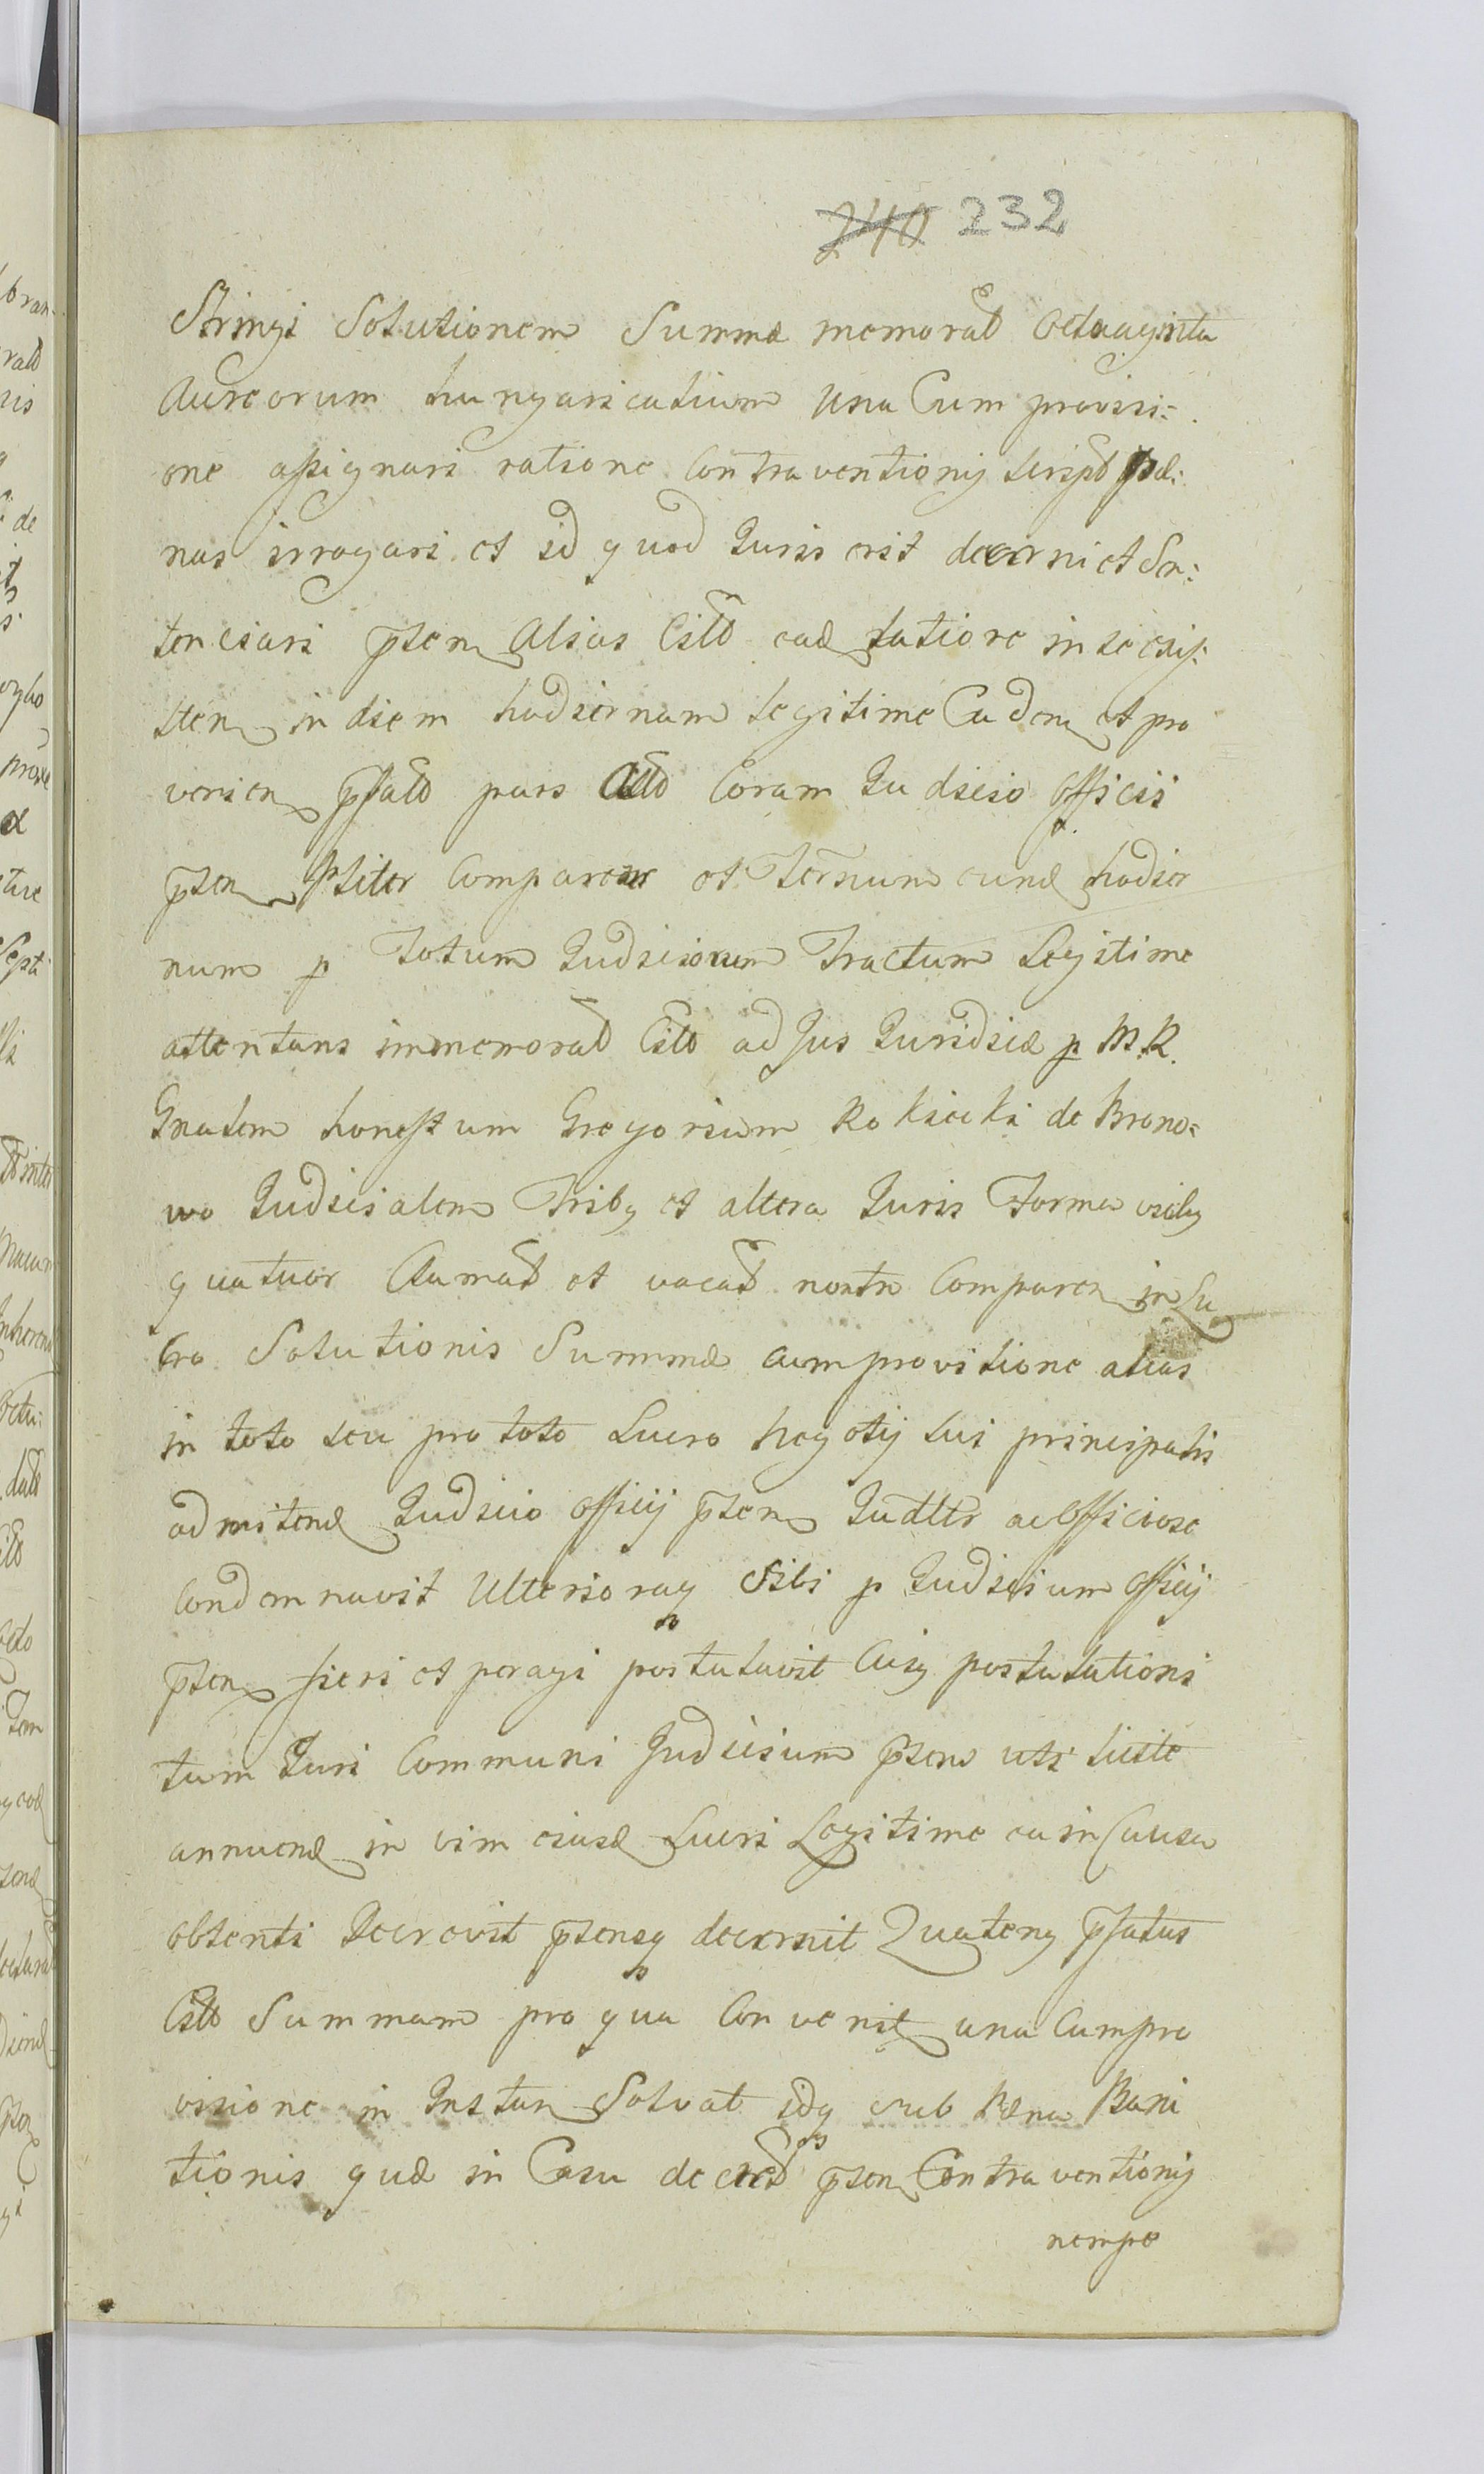 240 232
Stringi Solutionem Summæ memorat Octuaginta
Aureorum hungaricalium Una Cum provisi=
one assignari ratione Contraventionis Script pæ:
nas irrogari et id quod Juris erit decerni et Sen:
tenciari pñtem Alias Citt eað tatione in se exis:
sten in diem hodiernam legitime Caden et pro
venien pfatt pars Citt Coram Judicio Officii
pñten pliter Comparens et Ternum eund hodier
num p Totum Judiciorum Tractum Legitime
attentans immemorat Citt ad Jus Juridice p M. R.
Gnalem honestum Gregorium Rokicki de Brono=
wo Judicialem Tribq et altera Juris Forma vicibq
quatuor Clamat et vocat nontn Comparen in Lu
cro Solutionis Summæ cum provisione alias
in toto seu pro toto Lucro Negotij sui principalis
admitend Judicio officij pñten Judttr ac Officiose
Condemnavit Ulterioraq Sibi p Judicium Officij
pñten fieri et peragi postulavit Cuiq postulationi
tum Juri Communi Judicium pñtens uti Juste
annuend in vim eiusd Lucri Legitime ea in Causa
obtenti Decrevit pñtensq decernit Quatenq pfatus
Citt Summam pro qua Convenit una Cum pro
visione in Instan Solvat idq sub Pæna Bani
tionis quæ in Casu decret pñten Contraventionis
nempe